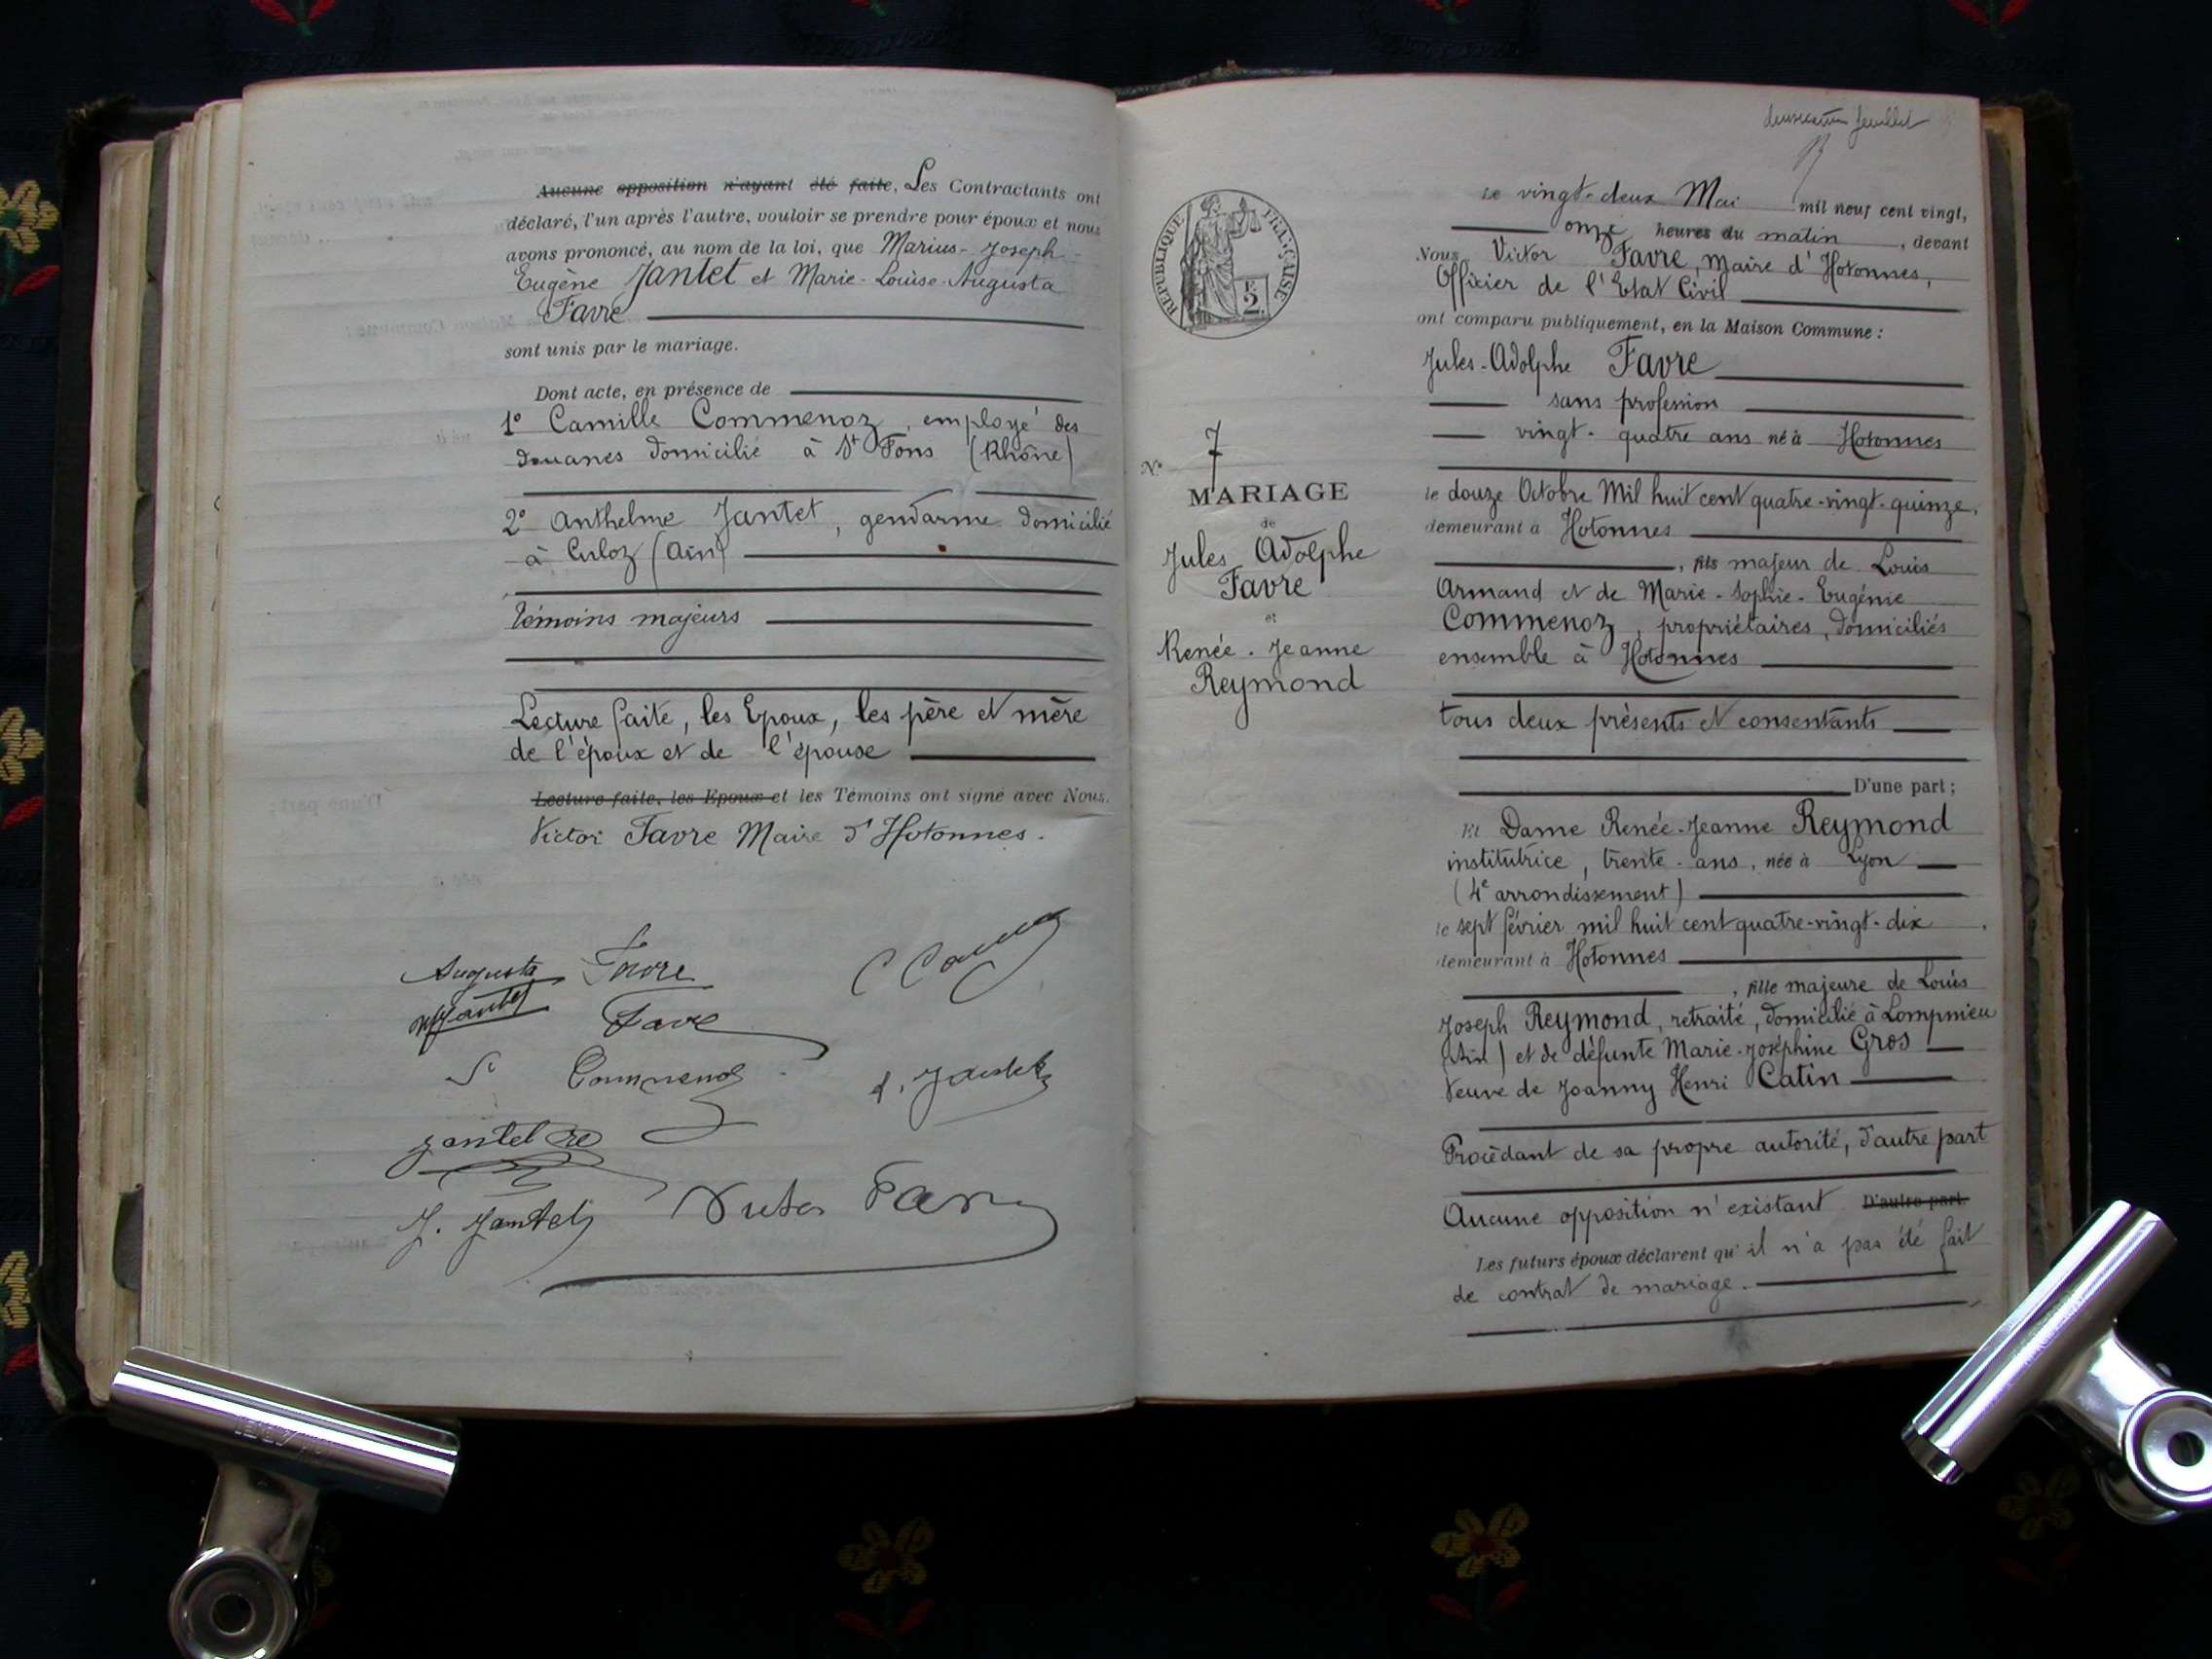 Aucune opposition n'ayant été faite, Les Contractants ont
déclaré, l'un après l'autre, vouloir se prendre pour époux et nous
avons prononcé, au nom de la loi, que Marius-Joseph-
Eugène Jantet et Marie-Louise-Augusta
Favre
sont unis par le mariage.
Dont acte, en présence de
1° Camille Commenoz, employé des
douanes domicilié à St Fons (Rhône)
2° Anthelme Jantet, gendarme domicilié
à Culoz (Ain)
témoins majeurs
Lecture faite, les Epoux, les père et mère
de l'époux et de l'épouse
Lecture faite, les Epoux et les Témoins ont signé avec Nous.
Victor Favre Maire d'Hotonnes.
Augusta Favre
Jantet
Favre
Commenoz
A. Jantet
Jantet
J. Jantet
Victor Favre
feuillet
RÉPUBLIQUE FRANÇAISE
F.
2.
N° 7
MARIAGE
de
Jules Adolphe
Favre
et
Renée-Jeanne
Reymond
Le vingt-deux Mai mil neuf cent vingt,
onze heures du matin, devant
Nous Victor Favre, Maire d'Hotonnes,
Officier de l'Etat Civil
ont comparu publiquement, en la Maison Commune :
Jules-Adolphe Favre
sans profession
vingt-quatre ans né à Hotonnes
le douze Octobre Mil huit cent quatre-vingt-quinze,
demeurant à Hotonnes
, fils majeur de Louis
Armand et de Marie-Sophie-Eugénie
Commenoz, propriétaires, domiciliés
ensemble à Hotonnes
tous deux présents et consentants
D'une part ;
Et Dame Renée-Jeanne Reymond
institutrice, trente-ans, née à Lyon
(4e arrondissement)
le sept février mil huit cent quatre-vingt-dix
demeurant à Hotonnes
, fille majeure de Louis
Joseph Reymond, retraité, domicilié à Lompnieu
(Ain) et de défunte Marie-Joséphine Gros
Veuve de Joanny Henri Catin
Procédant de sa propre autorité, d'autre part
Aucune opposition n'existant D'autre part.
Les futurs époux déclarent qu'il n'a pas été fait
de contrat de mariage.